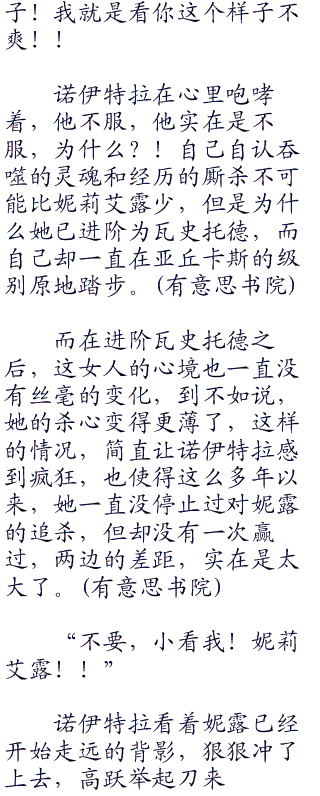 子！我就是看你这个样子不
爽！！
诺伊特拉在心里咆哮
着，他不服，他实在是不
服，为什么？！自己自认吞
噬的灵魂和经历的厮杀不可
能比妮莉艾露少，但是为什
么她已进阶为瓦史托德，而
自己却一直在亚丘卡斯的级
别原地踏步。(有意思书院)
而在进阶瓦史托德之
后，这女人的心境也一直没
有丝毫的变化，到不如说，
她的杀心变得更薄了，这样
的情况，简直让诺伊特拉感
到疯狂，也使得这么多年以
来，她一直没停止过对妮露
的追杀，但却没有一次赢
过，两边的差距，实在是太
大了。(有意思书院)
“不要，小看我！妮莉
艾露！！”
诺伊特拉看着妮露已经
开始走远的背影，狠狠冲了
上去，高跃举起刀来